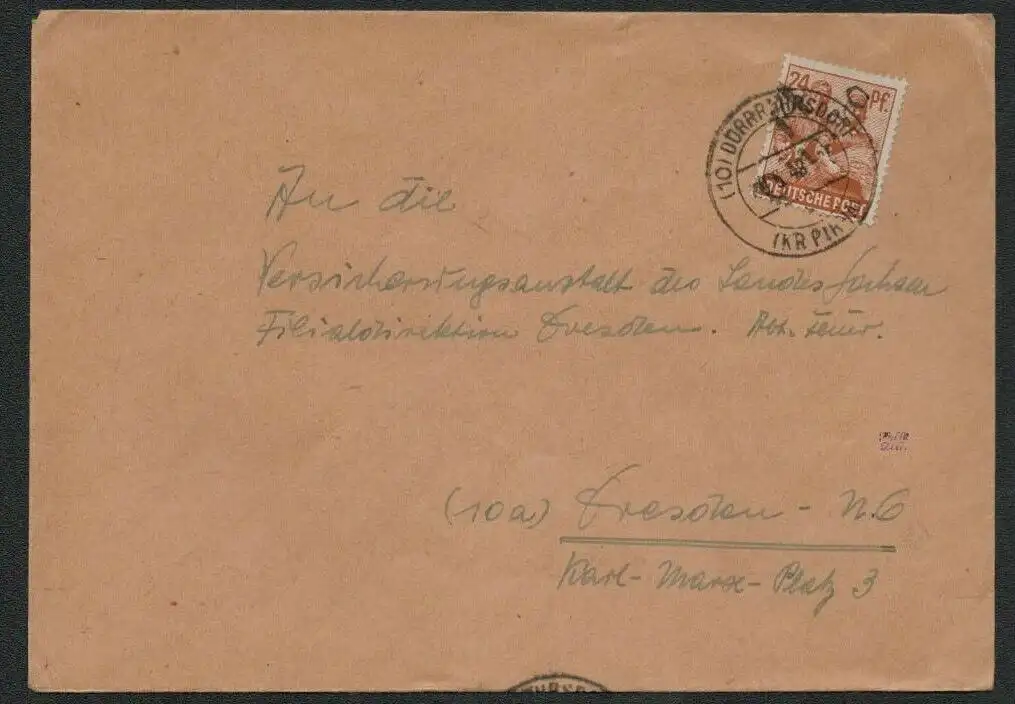 24 Pf.
DEUTSCHE POST
(10) DÜRRRÖHRSDORF
48
(KR PIRNA)
An die
Versicherungsanstalt des Landes Sachsen
Filialdirektion Dresden. Abt. Feuer.
(10a) Dresden - N.6
Karl-Marx-Platz 3